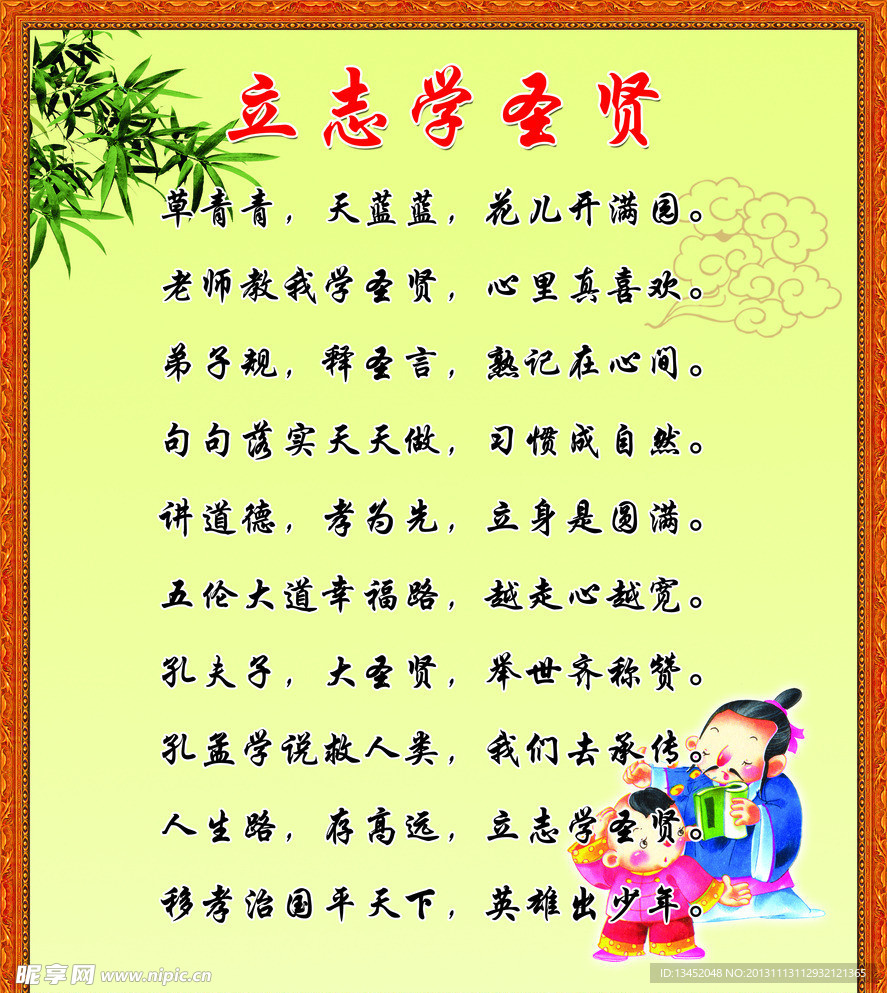 立志学圣贤
草青青，天蓝蓝，花儿开满园。
老师教我学圣贤，心里真喜欢。
弟子规，释圣言，熟记在心间。
句句落实天天做，习惯成自然。
讲道德，孝为先，立身是圆满。
五伦大道幸福路，越走心越宽。
孔夫子，大圣贤，举世齐称赞。
孔孟学说救人类，我们去承传。
人生路，存高远，立志学圣贤。
移孝治国平天下，英雄出少年。
昵享网 www.nipic.cn
ID:13452048 NO:20131113112932121365